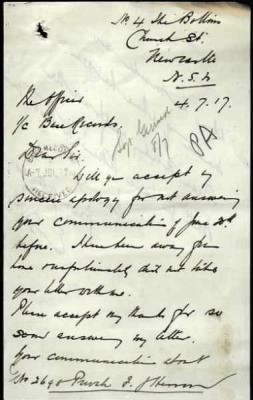 No 4 The Bollins
Church St.
Newcastle
N.S.W
4.7.17.
The Officer
I/c Base Records.
Dear Sir.
Will you accept my
sincere apology for not answering
your communication of June
before. I have been away from
home & unfortunately did not take
your letter with me.
Please accept my thanks for so
soon answering my letter.
Your communication about
No 2690 Private J.
PA